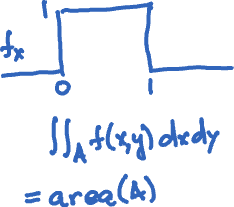 1
fx
0 1
∬_A f(x,y) dxdy
= area(A)